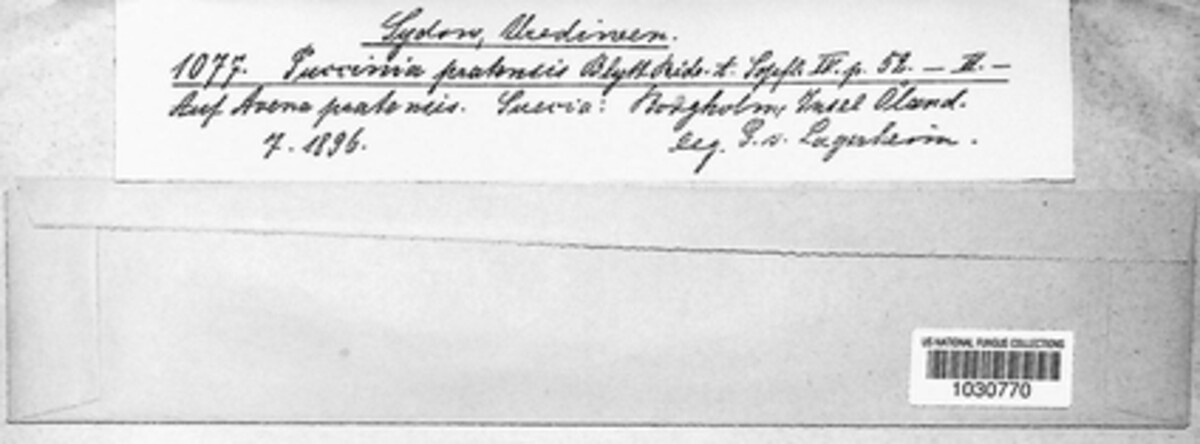 Sydow, Uredineen.
1077. Puccinia pratensis Blytt Bidr. t. Sopfl. IV. p. 52. — II. —
Auf Avena pratensis. Suecia: Borgholm, Insel Öland.
7. 1896. leg. G. v. Lagerheim.
US NATIONAL FUNGUS COLLECTIONS
1030770